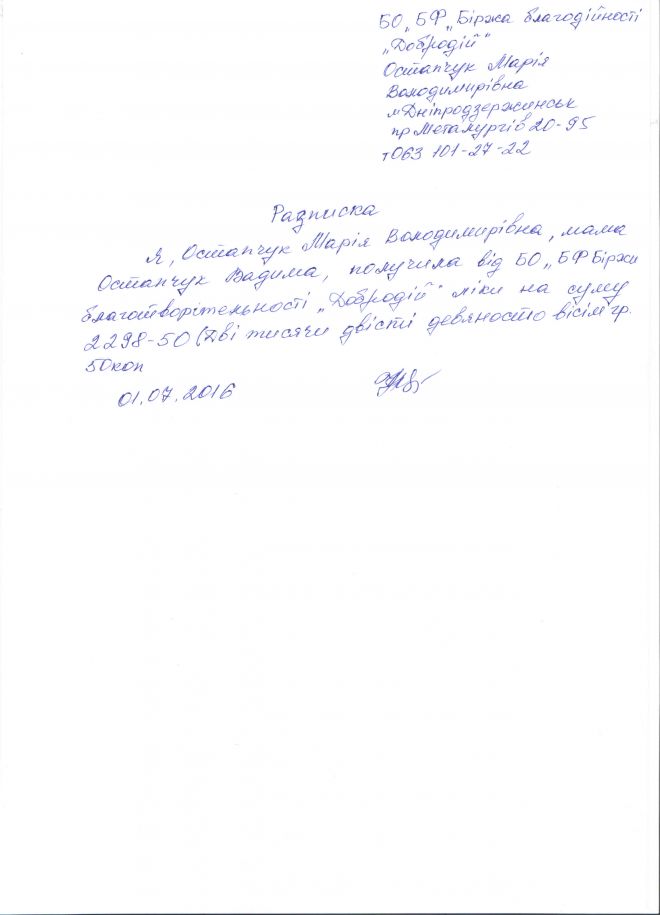 БО „БФ „Біржа благодійності
„Добродій"
Остапчук Марія
Володимирівна
м Дніпродзержинськ
пр Металургів 20-95
т 063 101-27-22
Разписка
Я, Остапчук Марія Володимирівна, мама
Остапчук Вадима, получила від БО „БФ Біржи
благотворітельності „Добродій" ліки на суму
2298-50 (Дві тисячи двісті девяносто вісім гр.
50коп
01.07.2016